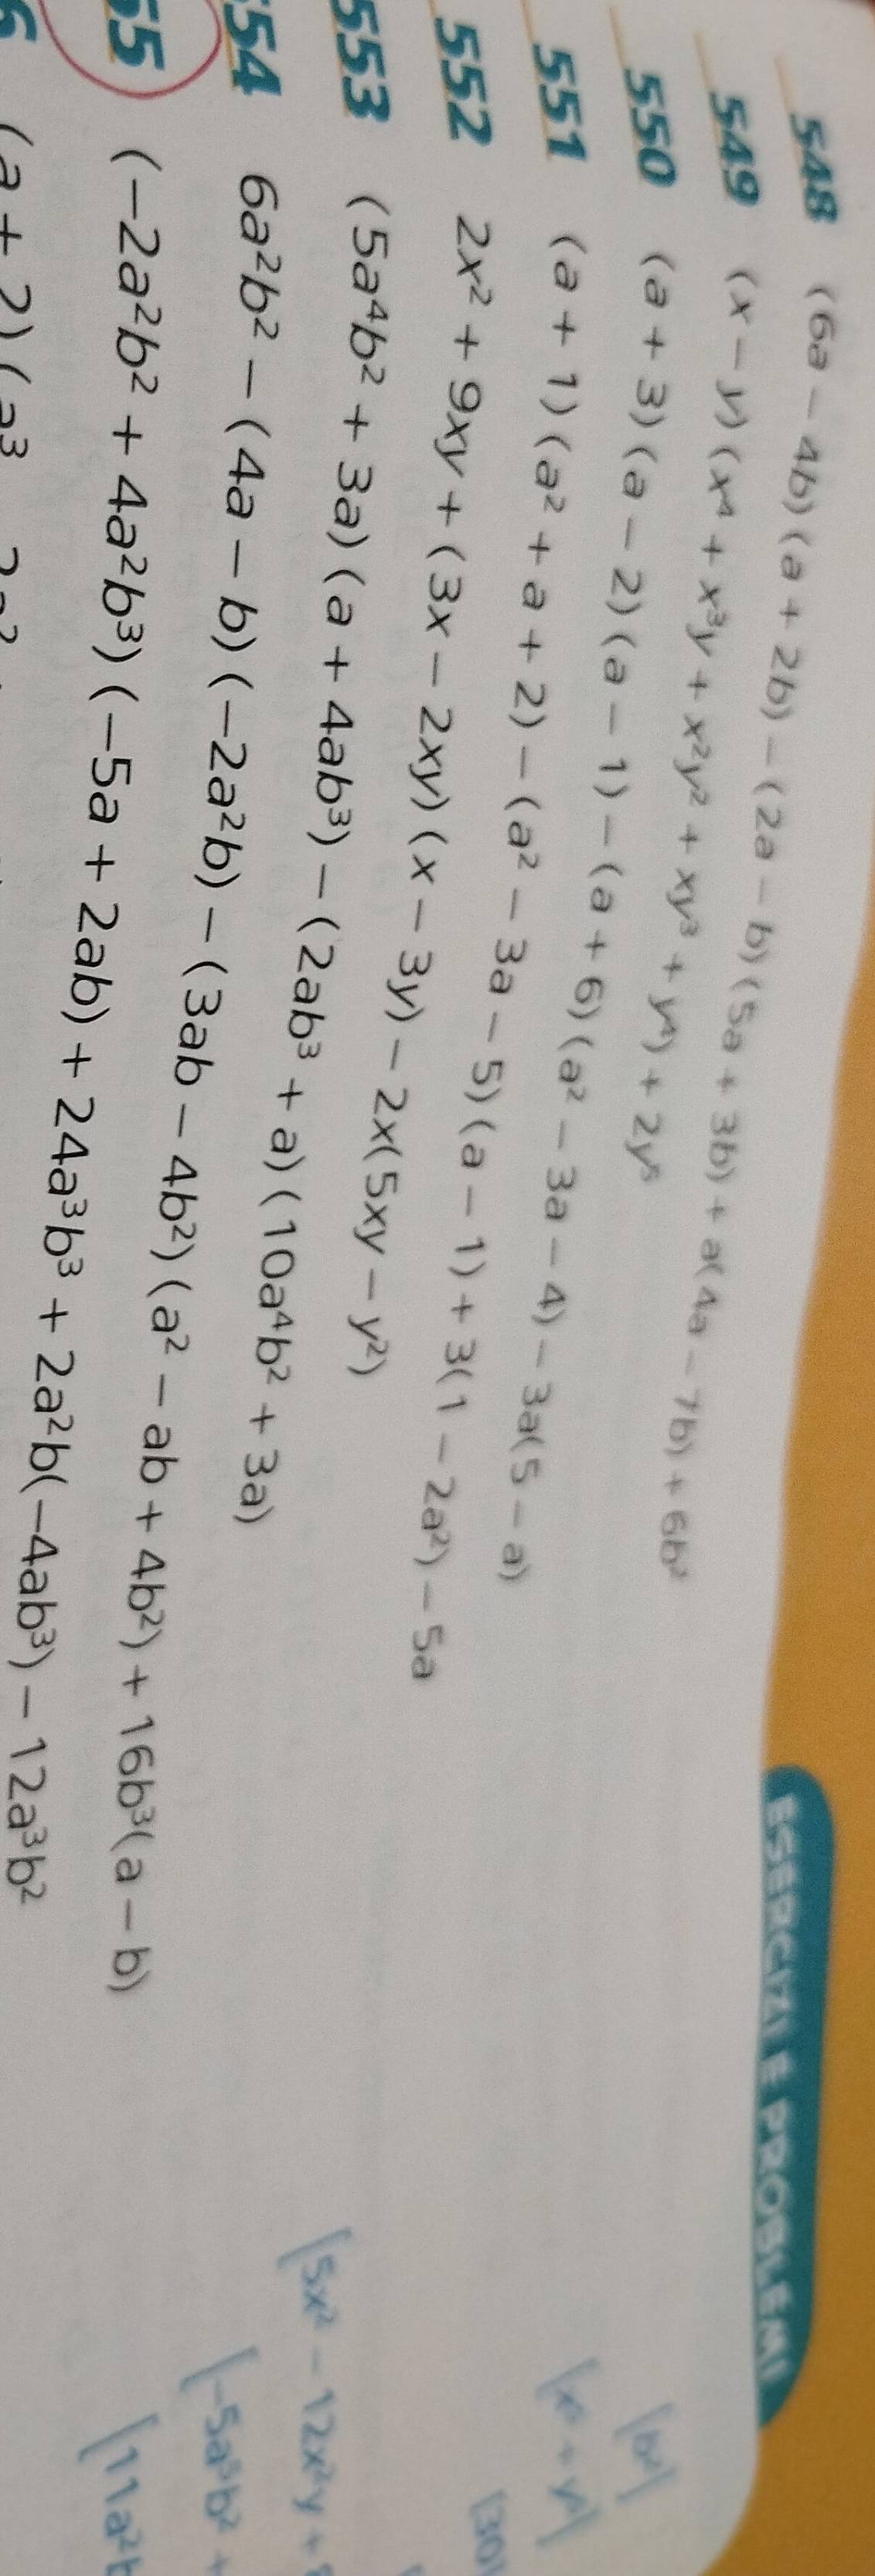 ESERCIZI E PROBLEMI
548 (6a − 4b)(a + 2b) − (2a − b)(5a + 3b) + a(4a − 7b) + 6b² [b²]
549 (x − y)(x⁴ + x³y + x²y² + xy³ + y⁴) + 2y⁵ [x⁵ + y⁵]
550 (a + 3)(a − 2)(a − 1) − (a + 6)(a² − 3a − 4) − 3a(5 − a) [30]
551 (a + 1)(a² + a + 2) − (a² − 3a − 5)(a − 1) + 3(1 − 2a²) − 5a
552 2x² + 9xy + (3x − 2xy)(x − 3y) − 2x(5xy − y²) [5x² − 12x²y +
553 (5a⁴b² + 3a)(a + 4ab³) − (2ab³ + a)(10a⁴b² + 3a) [−5a⁵b² +
54 6a²b² − (4a − b)(−2a²b) − (3ab − 4b²)(a² − ab + 4b²) + 16b³(a − b) [11a²b
55 (−2a²b² + 4a²b³)(−5a + 2ab) + 24a³b³ + 2a²b(−4ab³) − 12a³b²
6 (a + 2)(a³